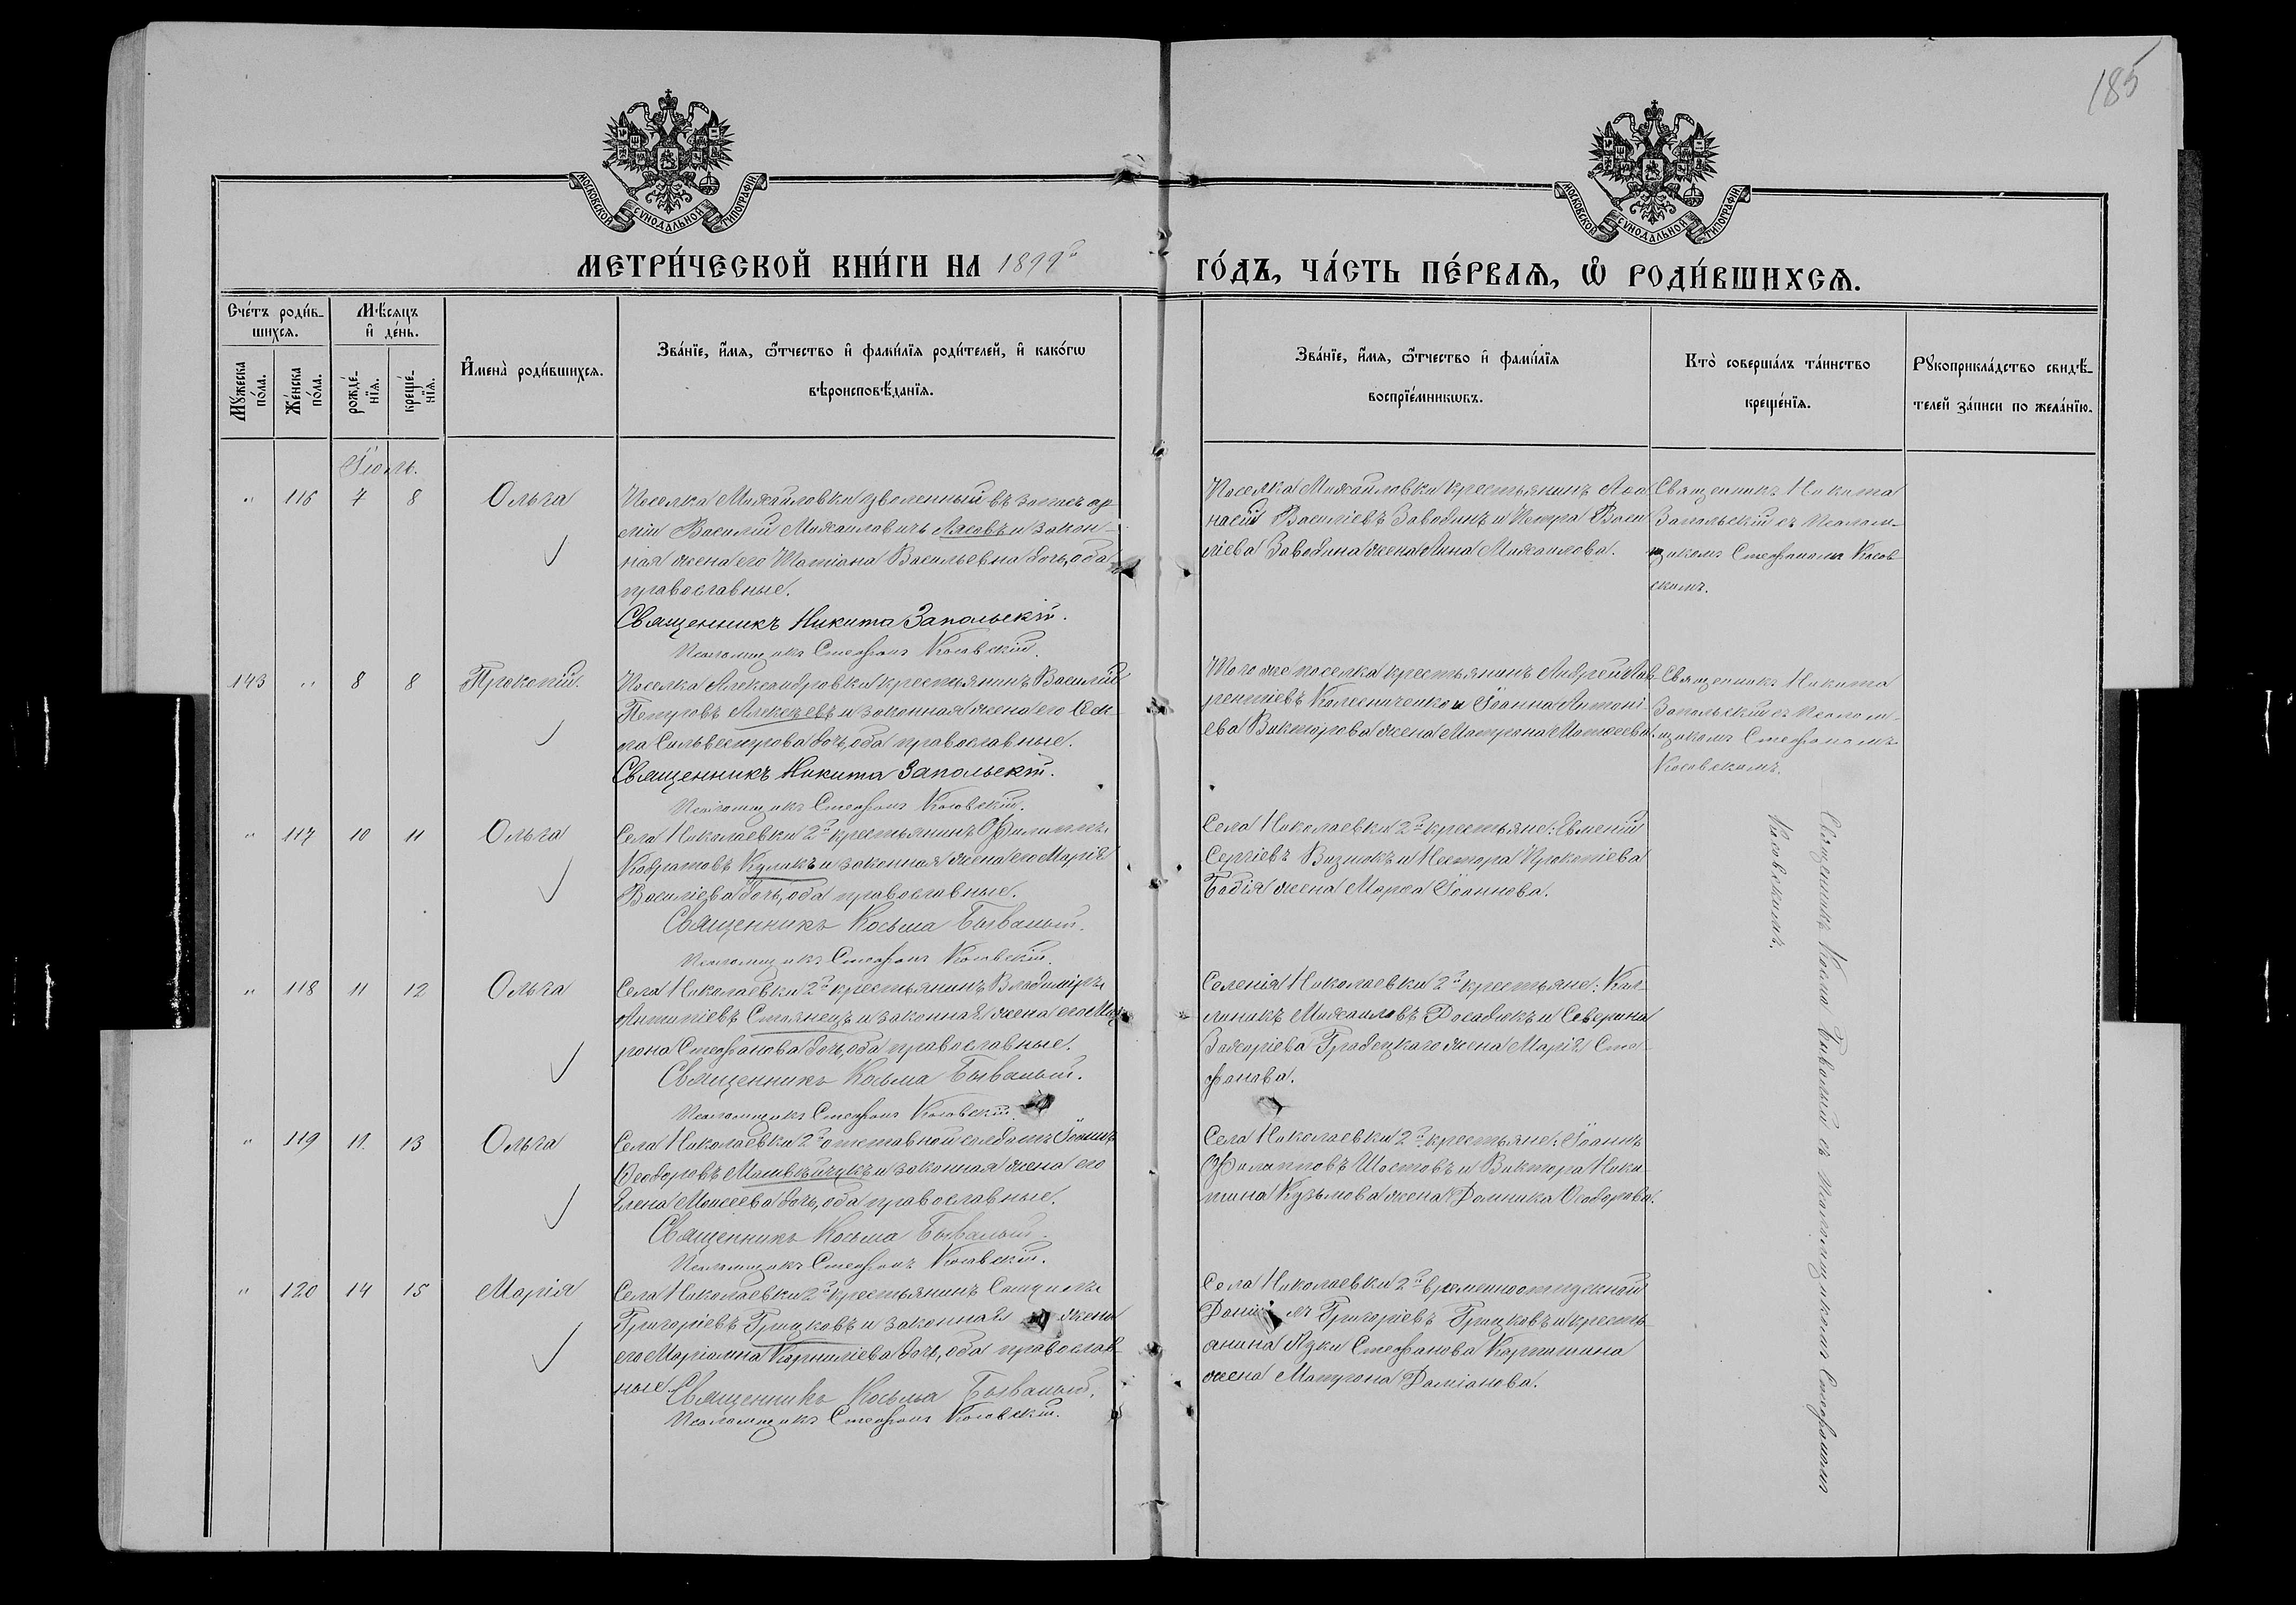 185
МОСКОВСКОЙ СѴНОДАЛЬНОЙ ТИПОГРАФІИ
МОСКОВСКОЙ СѴНОДАЛЬНОЙ ТИПОГРАФІИ
МЕТРИ́ЧЕСКОЙ КНИ́ГИ НА 1899й
ГО́ДЪ, ЧА́СТЬ ПЕ́РВАѦ, Ѡ҆ РОДИ́ВШИХСѦ.
Сче́тъ роди́в-
шихсѧ.
Мѣ́сѧцъ
и҆ де́нь.
Мꙋ́жеска по́ла.
Же́нска по́ла.
рожде́-нїѧ.
креще́-нїѧ.
И҆мена̀ роди́вшихсѧ.
Зва́нїе, и҆́мѧ, ѻ҆́тчество и҆ фами́лїѧ роди́телей, и҆ како́гѡ
вѣроисповѣ́данїѧ.
Зва́нїе, и҆́мѧ, ѻ҆́тчество и҆ фами́лїѧ
воспрїе́мникѡвъ.
Кто̀ соверша́лъ та́инство
креще́нїѧ.
Рꙋкоприкла́дство свидѣ́-
телей за́писи по жела́нїю.
Іюль.
" 116 7 8 Ольга
Поселка Михайловки уволенный въ запасъ ар-
міи Василій Михаиловичъ Лясовъ и закон-
ная жена его Татіана Васильевна дочь, оба
православные.
Священникъ Никита Запольскій.
Псаломщикъ Стефанъ Косовскій.
Поселка Михайловки крестьянинъ Афа
насій Василіевъ Заводинъ и Петра Васи
ліева Заводина жена Анна Михаилова.
Священникъ Никита
Запольскій съ Псалом-
щикомъ Стефаномъ Косов
скимъ.
143 " 8 8 Прокопій.
Поселка Александровки крестьянинъ Василій
Петровъ Алексѣевъ и законная жена его Фек-
ла Сильвестрова дочь, оба православные.
Священникъ Никита Запольскій.
Псаломщикъ Стефанъ Косовскій.
Того же поселка крестьянинъ Андрей Лав
рентіевъ Колесниченко и Іоанна Антоні-
ева Викторова жена Матрона Матѳеева.
Священникъ Никита
Запольскій съ Псалом-
щикомъ Стефаномъ
Косовскимъ.
" 117 10 11 Ольга
Села Николаевки 2й крестьянинъ Филиппъ
Кодратовъ Кулакъ и законная жена его Марія
Василіева дочь, оба православные.
Священникъ Косьма Бывалый.
Псаломщикъ Стефанъ Косовскій.
Села Николаевки 2й крестьяне: Евменій
Сергіевъ Визнюкъ и Нестора Прокопіева
Бабія жена Марѳа Іоаннова.
Священникъ Косма Бывалый съ Псаломщикомъ Стефаномъ
Косовскимъ.
" 118 11 12 Ольга
Села Николаевки 2й крестьянинъ Владиміръ
Антипіевъ Стоянецъ и законная жена его Мат
рона Стефанова дочь, оба православные.
Священникъ Косьма Бывалый.
Псаломщикъ Стефанъ Косовскій.
Селенія Николаевки 2й крестьяне: Кал-
линикъ Михаиловъ Досадюкъ и Северина
Захаріева Градецкаго жена Марія Сте-
фанова.
" 119 11. 13 Ольга
Села Николаевки 2й отставной солдатъ Іоаннъ
Ѳеодоровъ Матвѣйчукъ и законная жена его
Елена Моисеева дочь, оба православные.
Священникъ Косьма Бывалый.
Псаломщикъ Стефанъ Косовскій.
Села Николаевки 2й крестьяне: Іоаннъ
Филипповъ Шостовъ и Виктора Ники-
тина Кузьмова жена Домника Ѳеодорова.
" 120 14 15 Марія
Села Николаевки 2й крестьянинъ Самуилъ
Григоріевъ Грицковъ и законная жена
его Маріамна Корниліева дочь, оба православ-
ные. Священникъ Косьма Бывалый.
Псаломщикъ Стефанъ Косовскій.
Села Николаевки 2й временноотпускной
Даніилъ Григоріевъ Грицковъ и кресть-
янина Луки Стефанова Картишина
жена Матрона Даміанова.